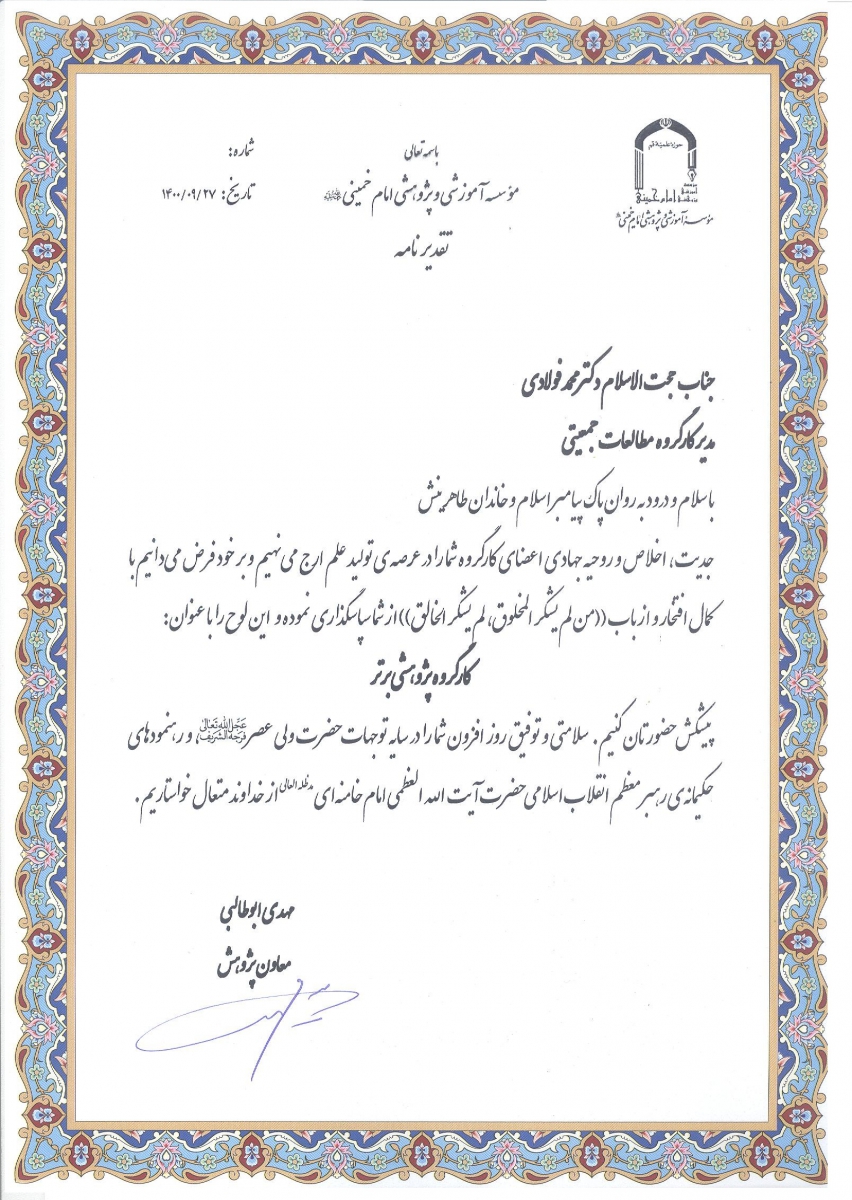 باسمه تعالی
مؤسسه آموزشی و پژوهشی امام خمینی
تقدیر نامه
شماره:
تاریخ: ۱۴۰۰/۰۹/۲۷
حوزه علمیه قم
مؤسسه آموزشی و پژوهشی امام خمینی
جناب حجت الاسلام دکتر محمد فولادی
مدیر کارگروه مطالعات جمعیتی
با سلام و درود به روان پاک پیامبر اسلام و خاندان طاهرینش
جدیت، اخلاص و روحیه جهادی اعضای کارگروه شما را در عرصه‌ی تولید علم ارج می‌نهیم و بر خود فرض می‌دانیم با
کمال افتخار و از باب ((من لم یشکر المخلوق، لم یشکر الخالق)) از شما سپاسگذاری نموده و این لوح را با عنوان:
کارگروه پژوهشی برتر
پیشکش حضورتان کنیم. سلامتی و توفیق روز افزون شما را در سایه توجهات حضرت ولی عصر عجل الله تعالی فرجه الشریف و رهنمودهای
حکیمانه‌ی رهبر معظم انقلاب اسلامی حضرت آیت الله العظمی امام خامنه ای مدظله العالی از خداوند متعال خواستاریم.
مهدی ابوطالبی
معاون پژوهش